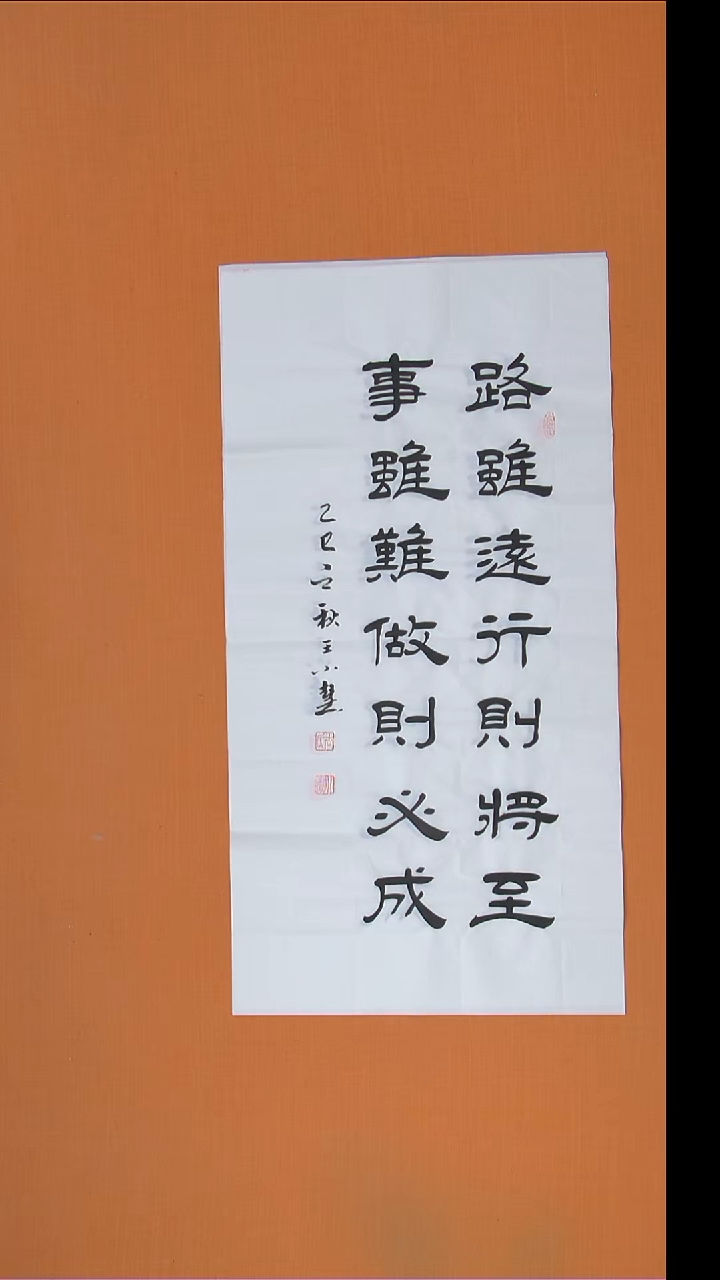 路雖遠行則將至
事雖難做則必成
乙巳立秋王小慧